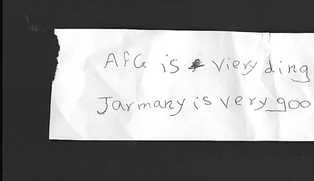 AFG is viery ding
Jarmany is very goo